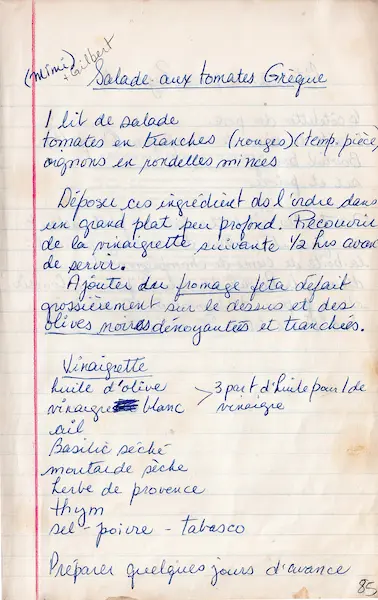 (Mimi) + Gilbert
Salade aux tomates Grèque
1 lit de salade
tomates en tranches (rouges) (temp. pièce)
oignons en rondelles minces
Déposer ces ingrédient ds l'ordre dans
un grand plat peu profond. Recouvrir
de la vinaigrette suivante 1/2 hrs avan
de servir.
Ajouter du fromage feta défait
grossièrement sur le dessus et des
olives noires dénoyautées et tranchées.
Vinaigrette
huile d'olive
vinaigre blanc > 3 part d'huile pour 1 de vinaigre
ail
Basilic séché
moutarde sèche
herbe de provence
thym
sel - poivre - tabasco
Préparer quelques jours d'avance
85